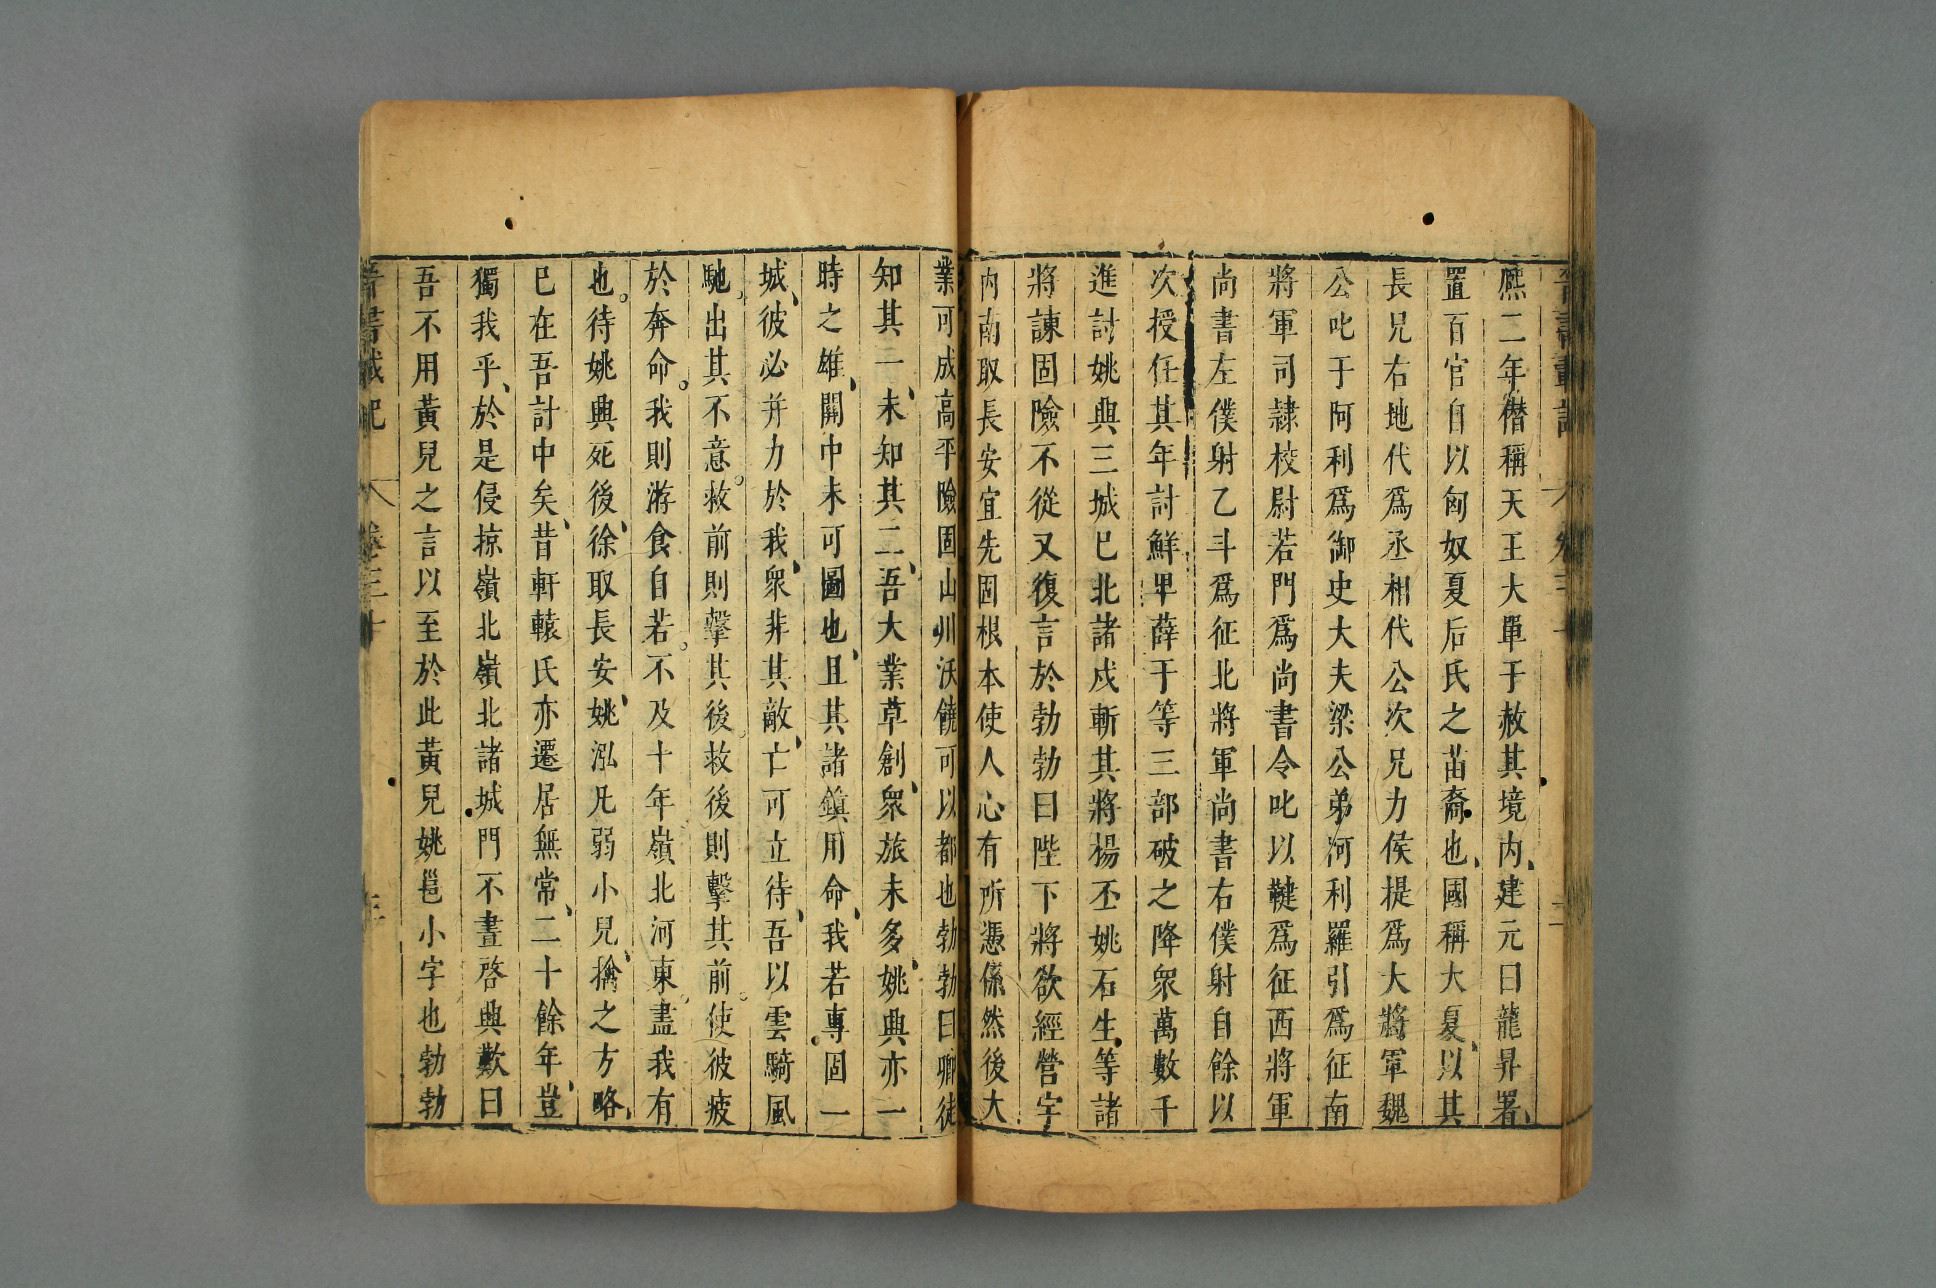 熈二年僣稱天王大單于赦其境内建元曰龍昇署
置百官自以匈奴夏后氏之苗裔也國稱大夏以其
長兄右地代爲丞相代公次兄力俟提爲大將軍魏
公叱于阿利爲御史大夫梁公弟河利羅引爲征南
將軍司隷校尉若門爲尚書令叱以鞬爲征西將軍
尚書左僕射乙斗爲征北將軍尚書右僕射自餘以
次授任其年討鮮卑薛于等三部破之降衆萬數千
進討姚興三城已北諸戍斬其將楊丕姚石生等諸
將諫固險不從又復言於勃勃曰陛下將欲經營宇
内南取長安宜先固根本使人心有所憑係然後大
業可成高平險固山川沃饒可以都也勃勃曰卿徒
知其一未知其二吾大業草創衆旅未多姚興亦一
時之雄關中未可圖也且其諸鎮用命我若專固一
城彼必并力於我衆非其敵亡可立待吾以雲騎風
馳出其不意救前則擊其後救後則擊其前使彼疲
於奔命我則游食自若不及十年嶺北河東盡我有
也待姚興死後徐取長安姚泓凡弱小兒擒之方略
已在吾計中矣昔軒轅氏亦遷居無常二十餘年豈
獨我乎於是侵掠嶺北嶺北諸城門不晝啓興歎曰
吾不用黃兒之言以至於此黃兒姚邕小字也勃勃